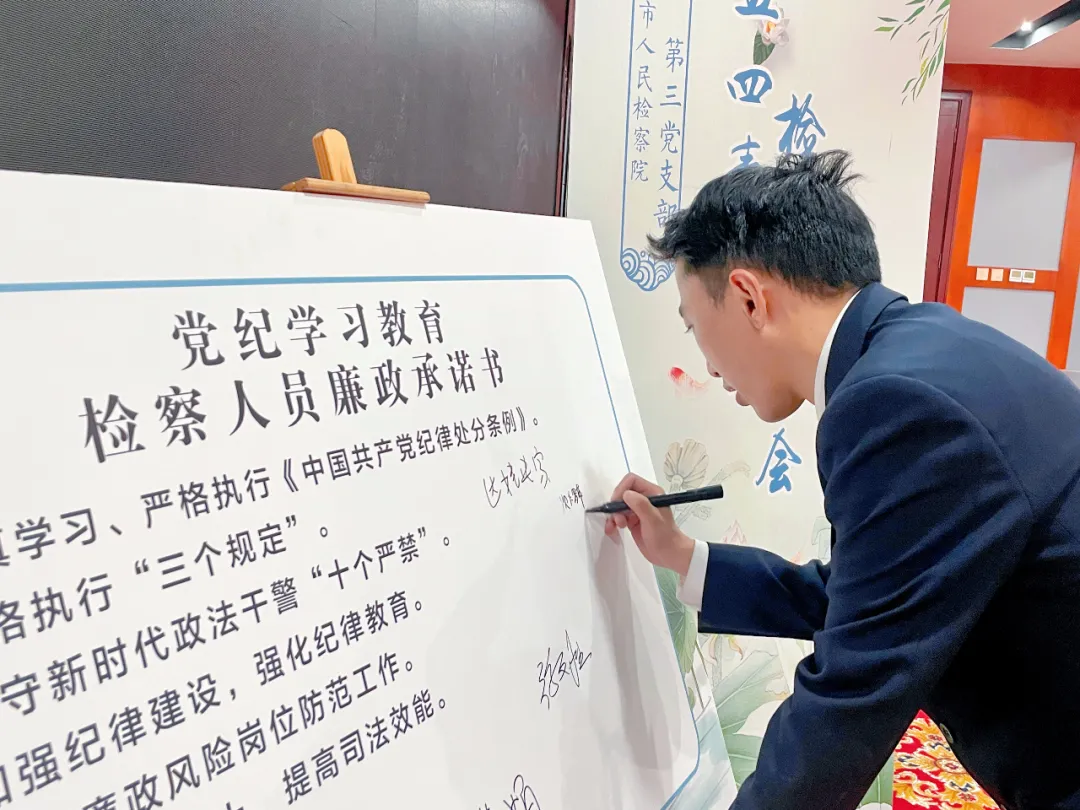 党纪学习教育
检察人员廉政承诺书
真学习、严格执行《中国共产党纪律处分条例》。
格执行“三个规定”。
守新时代政法干警“十个严禁”。
加强纪律建设，强化纪律教育。
廉政风险岗位防范工作。
提高司法效能。
市人民检察院
第三党支部
五四
检
会